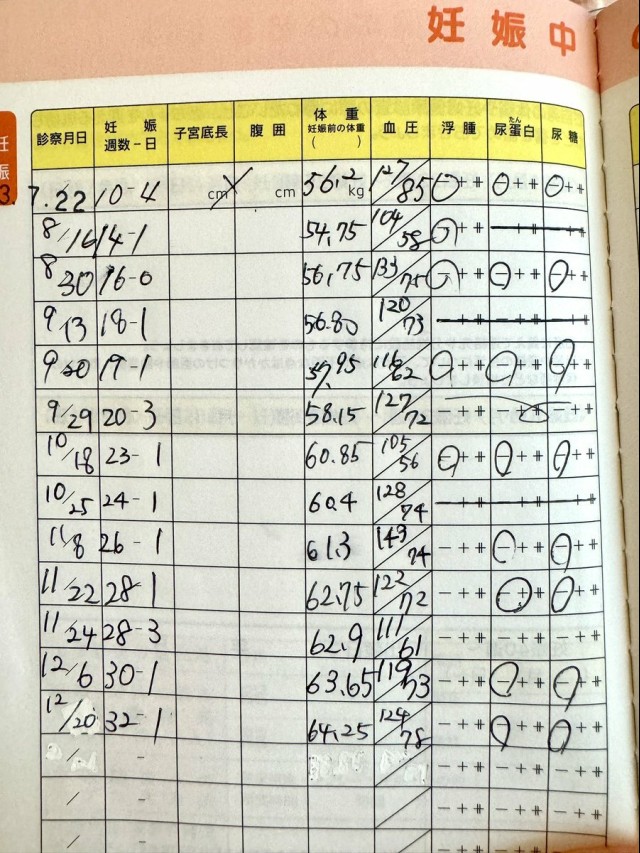 妊娠中
妊娠
3.
診察月日 妊娠週数-日 子宮底長 腹囲 体重 妊娠前の体重 ( ) 血圧 浮腫 尿蛋白 たん 尿糖
7.22 10-4 cm cm 56.2 kg 127/85 - + ⧺ - + ⧺ - + ⧺
8/16 14-1 54.75 104/58 - + ⧺ - + ⧺ - + ⧺
8/30 16-0 56.75 133/75 - + ⧺ - + ⧺ - + ⧺
9/13 18-1 56.80 120/73 - + ⧺ - + ⧺ - + ⧺
9/20 19-1 57.95 116/62 - + ⧺ - + ⧺ - + ⧺
9/29 20-3 58.15 127/72 - + ⧺ - + ⧺ - + ⧺
10/18 23-1 60.85 105/56 - + ⧺ - + ⧺ - + ⧺
10/25 24-1 60.4 128/74 - + ⧺ - + ⧺ - + ⧺
11/8 26-1 61.3 149/74 - + ⧺ - + ⧺ - + ⧺
11/22 28-1 62.75 122/72 - + ⧺ - + ⧺ - + ⧺
11/24 28-3 62.9 111/61 - + ⧺ - + ⧺ - + ⧺
12/6 30-1 63.65 119/73 - + ⧺ - + ⧺ - + ⧺
12/20 32-1 64.25 124/78 - + ⧺ - + ⧺ - + ⧺
/ - - + ⧺ - + ⧺ - + ⧺
/ - - + ⧺ - + ⧺ - + ⧺
/ - - + ⧺ - + ⧺ - + ⧺